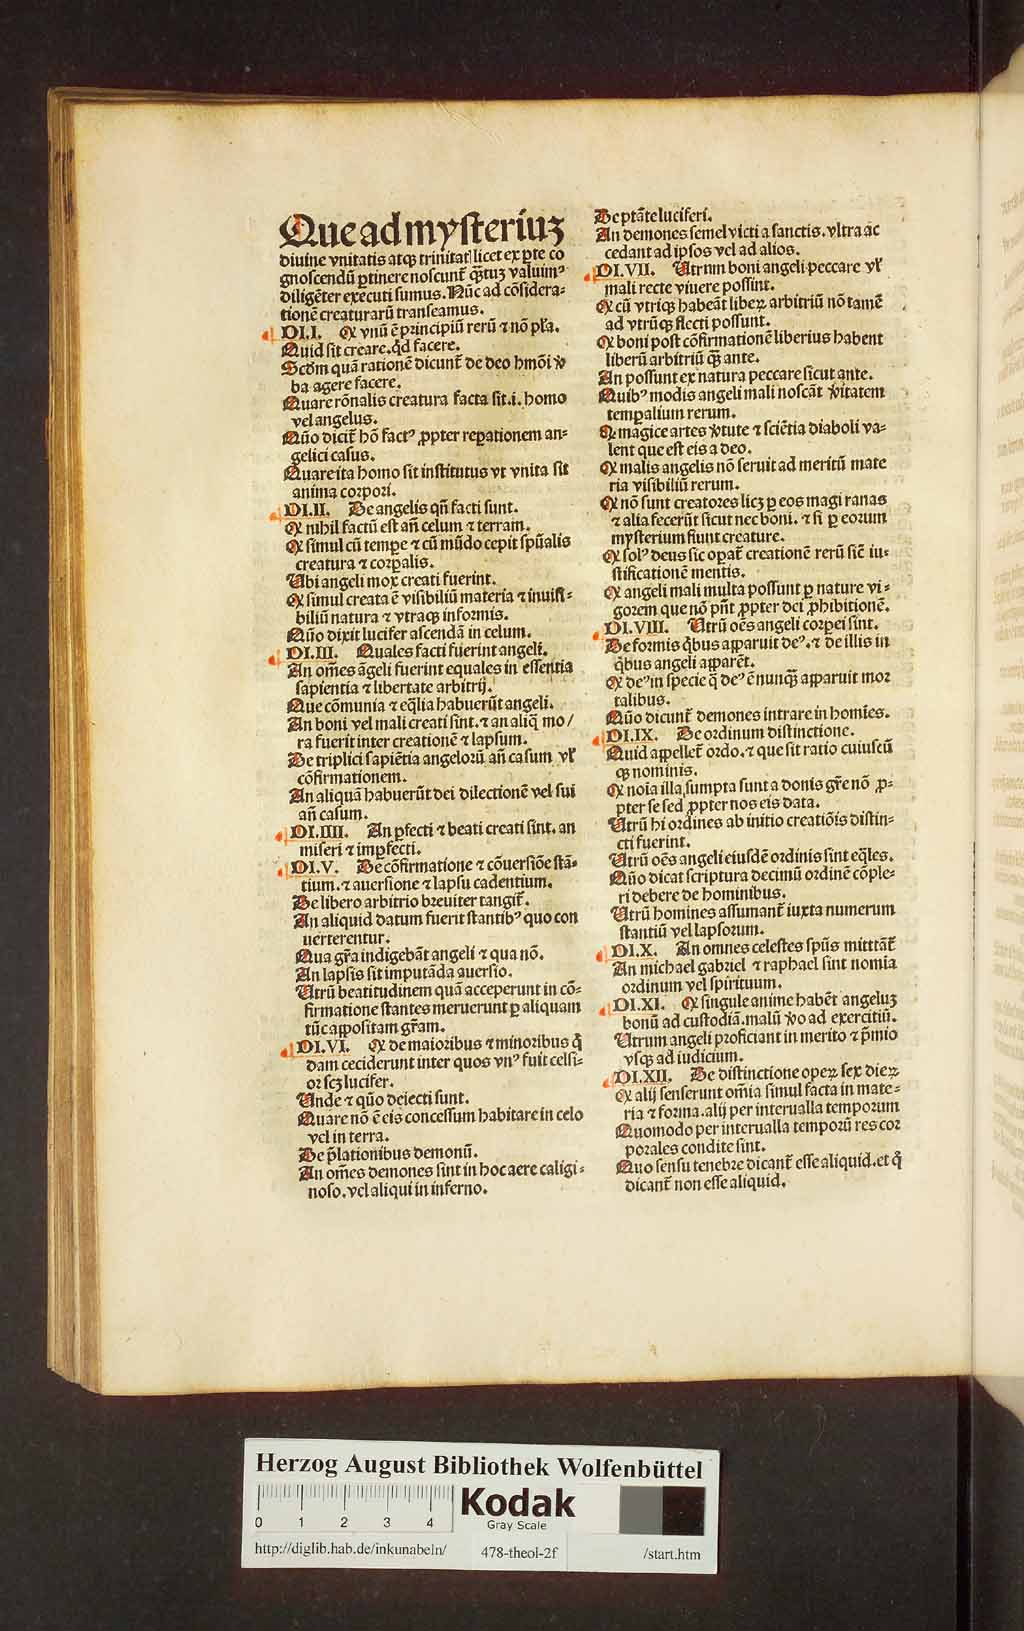 Que ad mysteriuꝫ
diuine vnitatis atqꝫ trinitat licet ex ꝑte co
gnoscendū ꝑtinere noscunt̄ qͣ̄tuꝫ valuim᷒
diligēter executi sumus. Nūc ad cōsidera⸗
tionē creaturarū transeamus.
DI.I. Qꝫ vnū ē principiū rerū ⁊ nō pl̄a.
Quid sit creare. qd̄ facere.
Scd̄m quā rationē dicunt̄ de deo hmōi v̄o
ba agere facere.
Quare rōnalis creatura facta sit .i. homo
vel angelus.
Quō dicit̄ hō fact᷒ ꝓpter reꝑationem an⸗
gelici casus.
Quare ita homo sit institutus vt vnita sit
anima corpori.
DI.II. De angelis qn̄ facti sunt.
Qꝫ nihil factū est an̄ celum ⁊ terram.
Qꝫ simul cū tempe ⁊ cū mūdo cepit spūalis
creatura ⁊ corꝑalis.
Ubi angeli mox creati fuerint.
Qꝫ simul creata ē visibiliū materia ⁊ inuisi⸗
biliū natura ⁊ vtraqꝫ informis.
Quō dixit lucifer ascendā in celum.
DI.III. Quales facti fuerint angeli.
An om̄es āgeli fuerint equales in essentia
sapientia ⁊ libertate arbitrij.
Que cōmunia ⁊ eq̄lia habuerūt angeli.
An boni vel mali creati sint. ⁊ an aliq̄ mo/
ra fuerit inter creationē ⁊ lapsum.
De triplici sapiētia angelorū an̄ casum vl̄
cōfirmationem.
An aliquā habuerūt dei dilectionē vel sui
an̄ casum.
DI.IIII. An ꝑfecti ⁊ beati creati sint. an
miseri ⁊ imꝑfecti.
DI.V. De cōfirmatione ⁊ cōuersiōe stā⸗
tium. ⁊ auersione ⁊ lapsu cadentium.
De libero arbitrio breuiter tangit̄.
An aliquid datum fuerit stantib᷒ quo con
uerterentur.
Qua gr̄a indigebāt angeli ⁊ qua nō.
An lapsis sit imputāda auersio.
Utrū beatitudinem quā acceperunt in cō⸗
firmatione stantes meruerunt ꝑ aliquam
tūc appositam gr̄am.
DI.VI. Qꝫ de maioribus ⁊ minoribus q̄
dam ceciderunt inter quos vn᷒ fuit celsi⸗
or scꝫ lucifer.
Unde ⁊ quō deiecti sunt.
Quare nō ē eis concessum habitare in celo
vel in terra.
De p̄lationibus demonū.
An om̄es demones sint in hoc aere caligi⸗
noso. vel aliqui in inferno.
De ptāte luciferi.
An demones semel victi a sanctis. vltra ac
cedant ad ipsos vel ad alios.
DI.VII. Utrum boni angeli peccare vl̄
mali recte viuere possint.
Qꝫ cū vtriqꝫ habeāt liberꝝ arbitriū nō tamē
ad vtrūqꝫ flecti possunt.
Qꝫ boni post cōfirmationē liberius habent
liberū arbitriū qͣ̄ ante.
An possunt ex natura peccare sicut ante.
Quib᷒ modis angeli mali noscāt v̄itatem
temꝑalium rerum.
Qꝫ magice artes v̄tute ⁊ sciētia diaboli va⸗
lent que est eis a deo.
Qꝫ malis angelis nō seruit ad meritū mate
ria visibiliū rerum.
Qꝫ nō sunt creatores licꝫ ꝑ eos magi ranas
⁊ alia fecerūt sicut nec boni. ⁊ si ꝑ eorum
mysterium fiunt creature.
Qꝫ sol᷒ deus sic oꝑat̄ creationē rerū sic̄ iu⸗
stificationē mentis.
Qꝫ angeli mali multa possunt ꝑ nature vi⸗
gorem que nō pn̄t ꝓpter dei ꝓhibitionē.
DI.VIII. Utrū oēs angeli corpei sint.
De formis q̄bus apparuit de᷒. ⁊ de illis in
q̄bus angeli apparēt.
Qꝫ de᷒ in specie q̄ de᷒ ē nunqͣ̄ apparuit mor
talibus.
Quō dicunt̄ demones intrare in homīes.
DI.IX. De ordinum distinctione.
Quid appellet̄ ordo. ⁊ que sit ratio cuiuscū
qꝫ nominis.
Qꝫ noīa illa sumpta sunt a donis gr̄e nō ꝓ⸗
pter se sed ꝓpter nos eis data.
Utrū hi ordines ab initio creatiōis distin⸗
cti fuerint.
Utrū oēs angeli eiusdē ordinis sint eq̄les.
Quō dicat scriptura decimū ordinē cōple⸗
ri debere de hominibus.
Utrū homines assumant̄ iuxta numerum
stantiū vel lapsorum.
DI.X. An omnes celestes spūs mitttāt̄
An michael gabriel ⁊ raphael sint nomīa
ordinum vel spirituum.
DI.XI. Qꝫ singule anime habēt angeluꝫ
bonū ad custodiā. malū v̄o ad exercitiū.
Utrum angeli proficiant in merito ⁊ p̄mio
vsqꝫ ad iudicium.
DI.XII. De distinctione operꝝ sex dierꝝ
Qꝫ alij senserunt om̄ia simul facta in mate⸗
ria ⁊ forma. alij per interualla temporum
Quomodo per interualla temporū res cor
porales condite sint.
Quo sensu tenebre dicant̄ esse aliquid. et q̄
dicant̄ non esse aliquid.
Herzog August Bibliothek Wolfenbüttel
0 1 2 3 4
Kodak
Gray Scale
http://diglib.hab.de/inkunabeln/ 478-theol-2f /start.htm